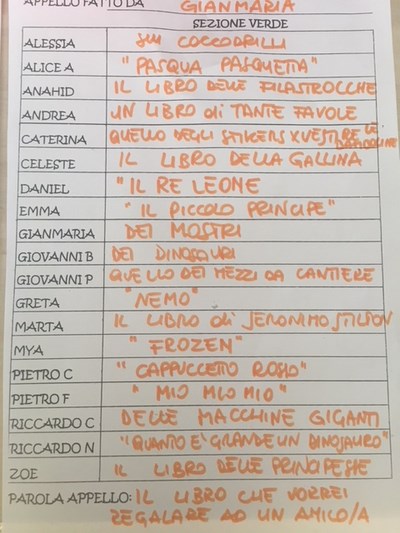 APPELLO FATTO DA GIANMARIA
SEZIONE VERDE
ALESSIA SUI COCCODRILLI
ALICE A "PASQUA PASQUETTA"
ANAHID IL LIBRO DELLE FILASTROCCHE
ANDREA UN LIBRO di TANTE FAVOLE
CATERINA QUELLO DEGLI STIKERS X VESTIRE LE
CELESTE IL LIBRO DELLA GALLINA
DANIEL "IL RE LEONE
EMMA "IL PICCOLO PRINCIPE"
GIANMARIA DEI MOSTRI
GIOVANNI B DEI DINOSAURI
GIOVANNI P QUELLO DEI MEZZI DA CANTIERE
GRETA "NEMO"
MARTA IL LIBRO di JERONIMO STILTON
MYA "FROZEN"
PIETRO C "CAPPUCCETTO ROSSO"
PIETRO F "MIO MIO MIO"
RICCARDO C DELLE MACCHINE GIGANTI
RICCARDO N "QUANTO E' GRANDE UN DINOSAURO"
ZOE IL LIBRO DELLE PRINCIPESSE
PAROLA APPELLO: IL LIBRO CHE VORREI
REGALARE AD UN AMICO/A